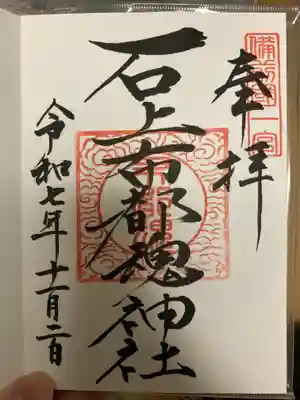 備前國一宮
奉拝
石上布都魂神社
令和七年十一月二日